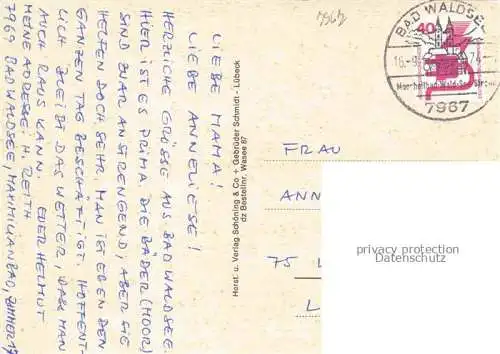 LIEBE MAMA!
LIEBE ANNELIESE!
HERZLICHE GRÜSSE AUS BAD WALDSEE.
HIER IST ES PRIMA. DIE BÄDER (MOOR)
SIND ZWAR ANSTRENGEND, ABER SIE
HELFEN DOCH SEHR. MAN IST EBEN DEN
GANZEN TAG BESCHÄFTIGT. HOFFENT-
LICH BLEIBT DAS WETTER, DASS MAN
AUCH RAUS KANN. EUER HELMUT
MEINE ADRESSE: H. REITH
7967 BAD WALDSEE, MAXIMILIANBAD, ZIMMER 19
Horst. u. Verlag Schöning & Co + Gebrüder Schmidt - Lübeck
dz Bestellnr. Wasee 87
7967
BAD WALDSEE
40
7967
FRAU
ANN
75
L
privacy protection
Datenschutz